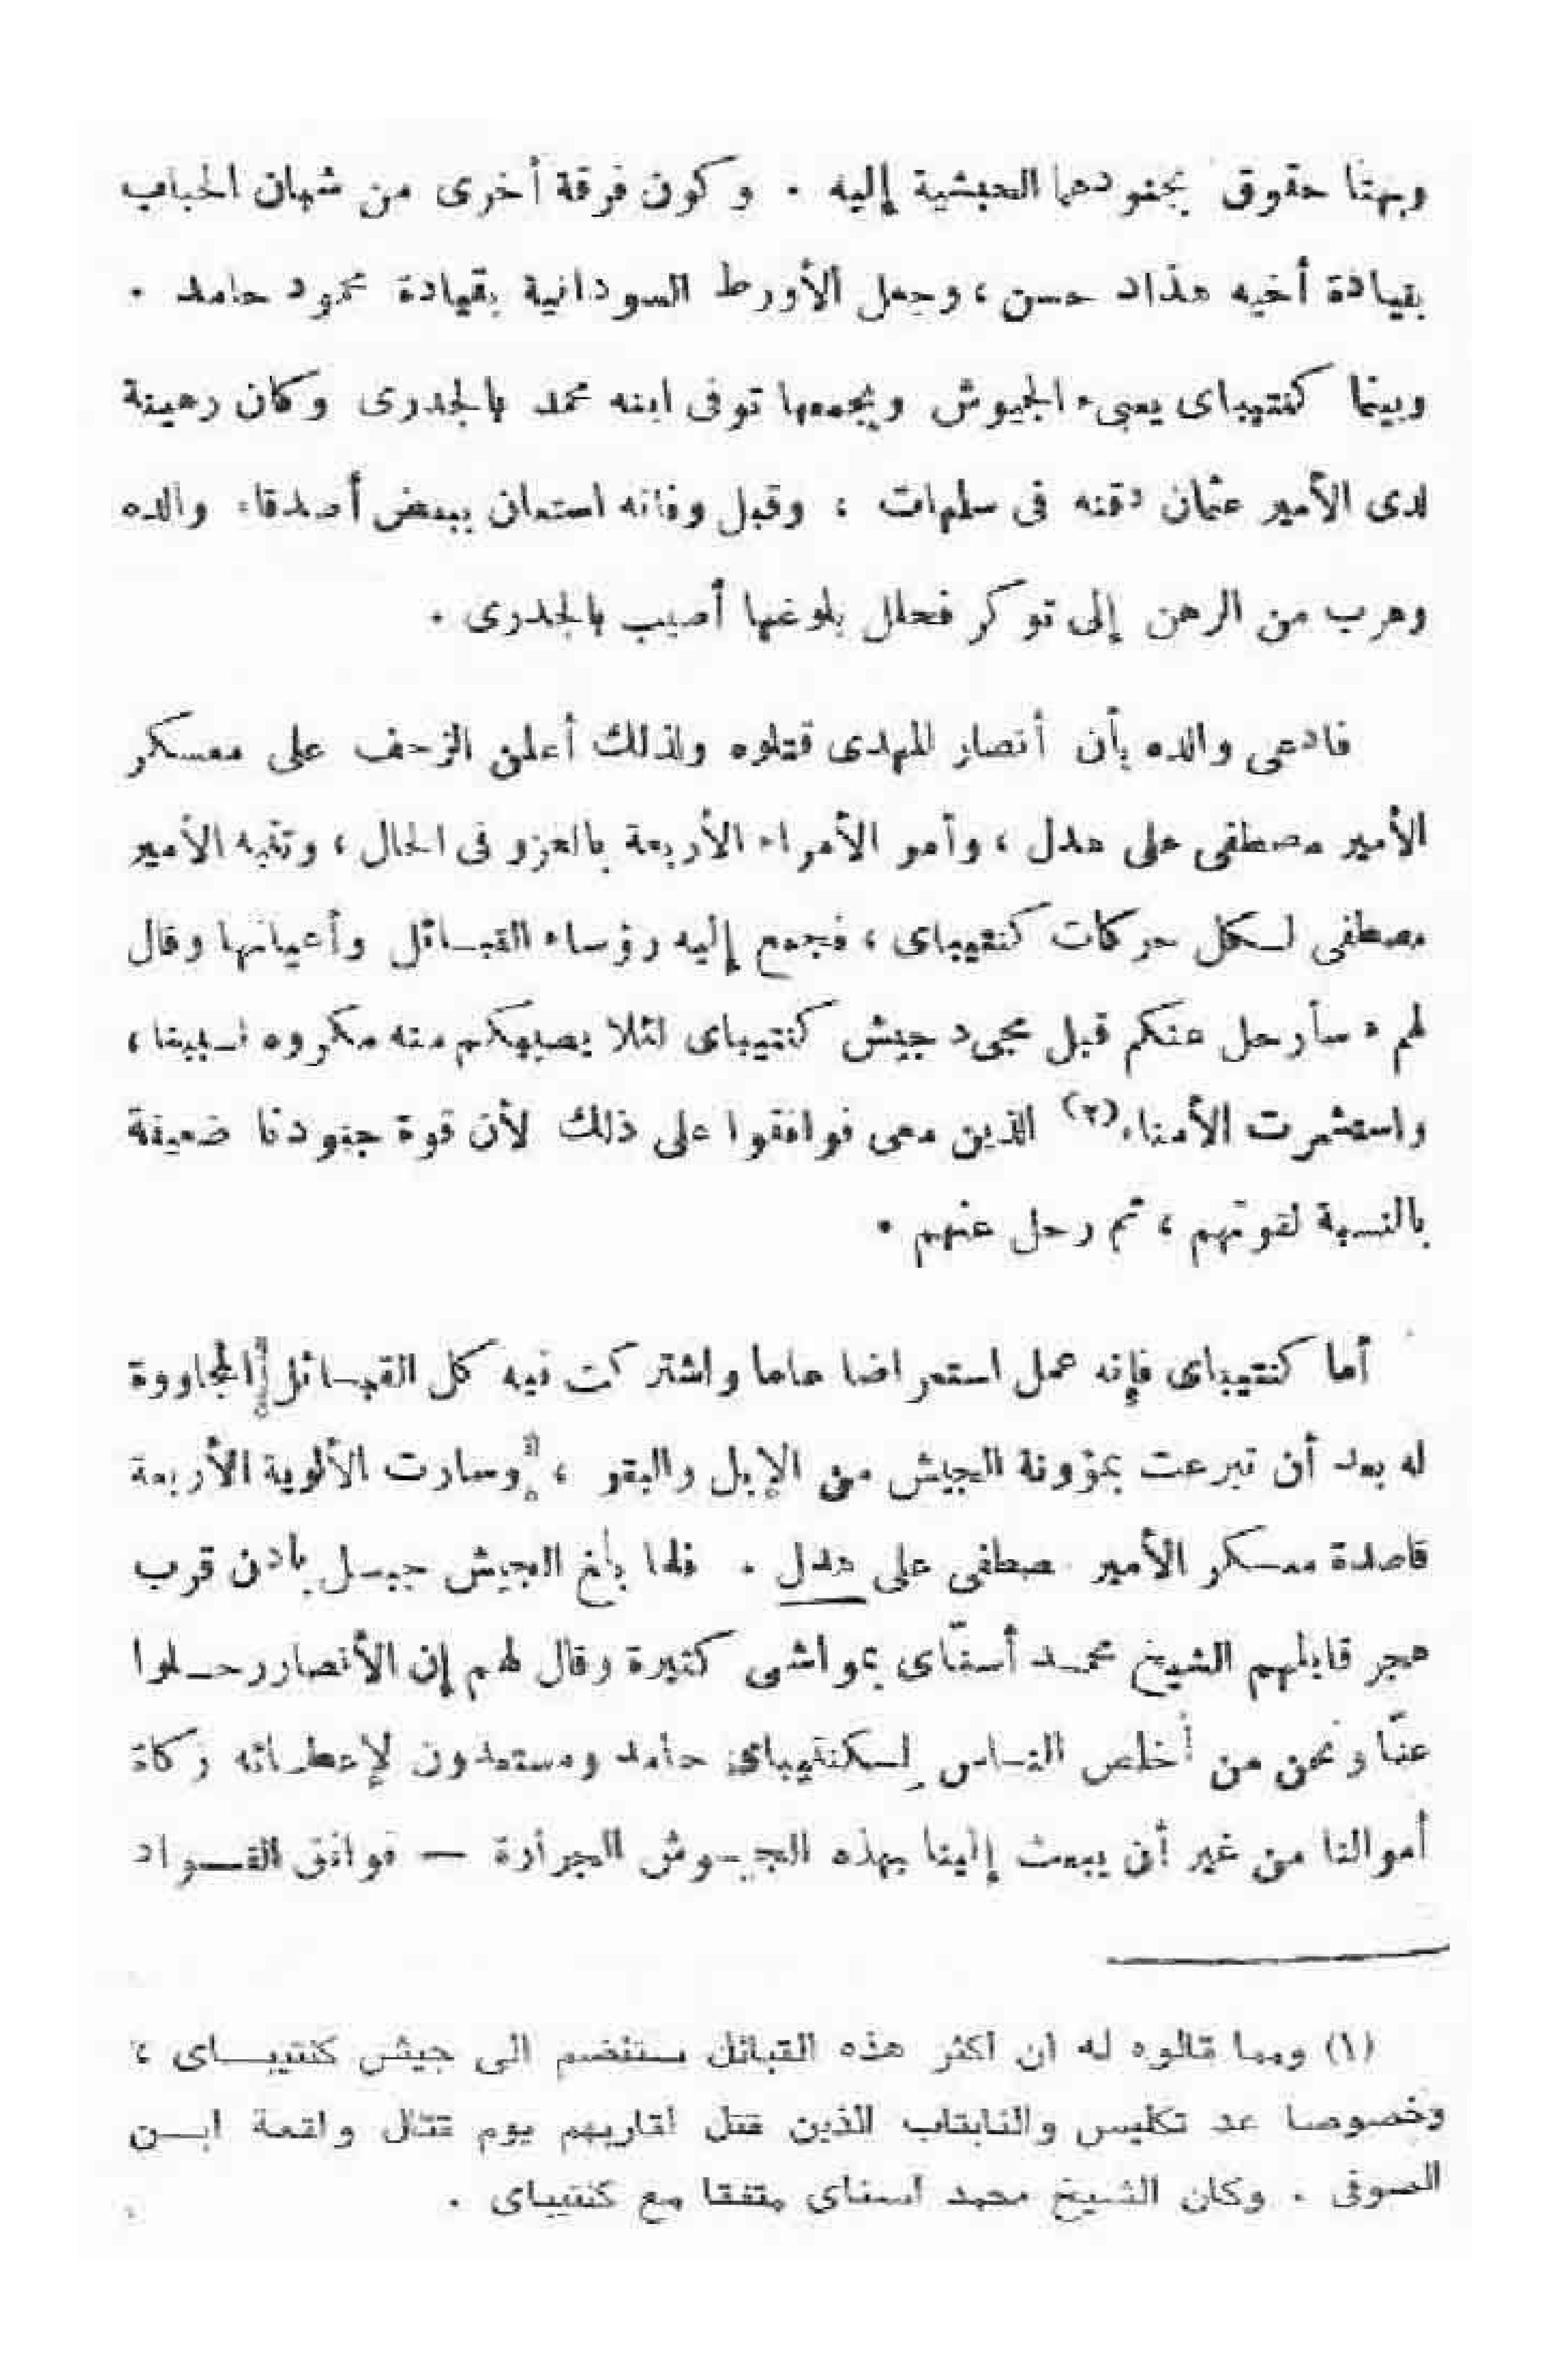 وبهتا حقوق بجنودهما الحبشية إليه . وكون فرقة أخرى من شبان الحباب
بقيادة أخيه هداد حسن ، وجعل الأورط السودانية بقيادة محمود حامد .
وبينما كنتيباى يعبىء الجيوش ويجمعها توفى ابنه محمد بالجدرى وكان رهينة
لدى الأمير عثمان دقنه فى سلهات ؛ وقبل وفاته استعان ببعض أصدقاء والده
وهرب من الرهن إلى توكر فحال بلوغها أصيب بالجدرى .
فادعى والده بأن أنصار المهدى قتلوه ولذلك أعلن الزحف على معسكر
الأمير مصطفى على هدل ، وأمر الأمراء الأربعة بالغزو فى الحال ، وتنبه الأمير
مصطفى لكل حركات كنتيباى ، فجمع إليه رؤساء القبائل وأعيانها وقال
لهم « سأرحل عنكم قبل مجىء جيش كنتيباى لئلا يصيبكم منه مكروه بسببنا ،
واستشرت الأمناء (٢) الذين معى فوافقوا على ذلك لأن قوة جنودنا ضعيفة
بالنسبة لقوتهم ، ثم رحل عنهم .
أما كنتيباى فإنه عمل استعراضا هاما واشتركت فيه كل القبائل المجاورة
له بعد أن تبرعت بمؤونة الجيش من الإبل والبقر ، وسارت الألوية الأربعة
قاصدة معسكر الأمير مصطفى على هدل . فلما بلغ الجيش جبل بادن قرب
هجر قابلهم الشيخ محمد أسنّاى بمواشى كثيرة وقال لهم إن الأنصار رحلوا
عنّا ونحن من أخلص الناس لكنتيباى حامد ومستعدون لإعطائه زكاة
أموالنا من غير أن يبعث إلينا بهذه الجيوش الجرارة — فوافق القواد
(١) ومما قالوه له ان اكثر هذه القبائل ستنضم الى جيش كنتيباى ،
وخصوصا عد تكليس والنابتاب الذين قتل اقاربهم يوم قتال واقعة ابن
الصوفى . وكان الشيخ محمد اسناى متفقا مع كنتيباى .